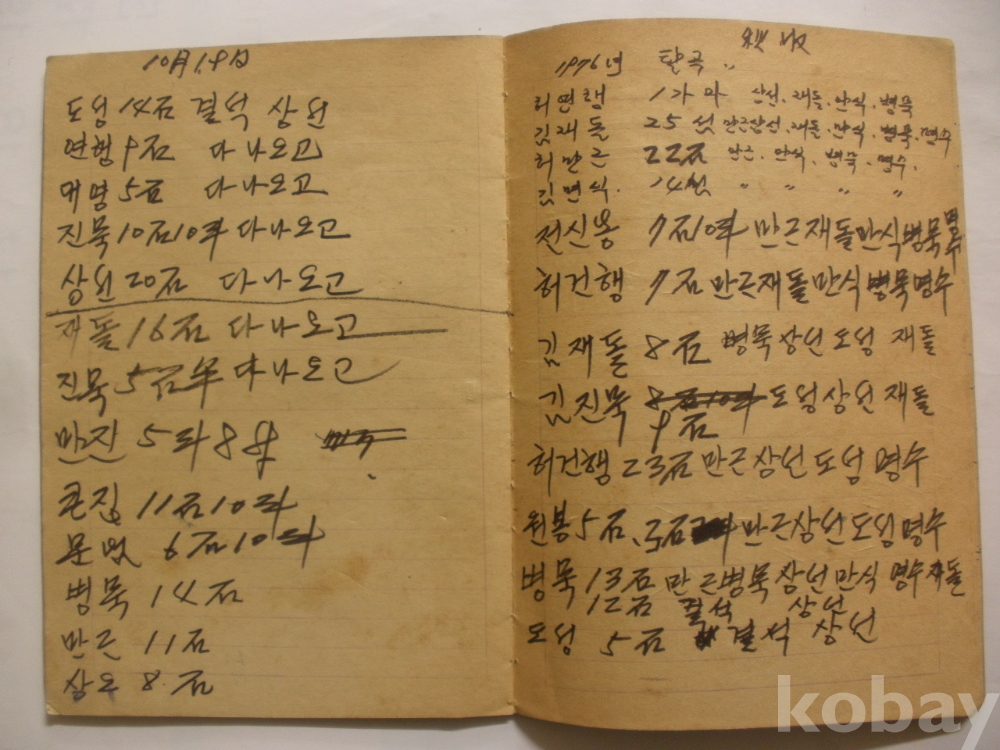 10月19日
도성 14石 결석 상선
연행 9石 다 나오고
대명 5石 다 나오고
진묵 10石10斗 다 나오고
상선 20石 다 나오고
재돌 16石 다 나오고
진묵 5石半 다 나오고
만진 5斗8升
큰집 11石10斗
문 6石10斗
병묵 14石
만근 11石
상오 8石
秋收
1976년 탈곡 〃
허연행 1가마 상선. 재돌. 만식. 병묵
김재돌 25석 만근상선. 재돌. 만식. 병묵. 명수
허만근 22石 만근. 만식. 병묵. 명수.
김면식. 14석 〃 〃 〃 〃
전신봉 7石10斗 만근재돌만식병묵명수
허건행 7石 만근재돌만식병묵명수
김재돌 8石 병묵상선도성 재돌
김진묵 8石10斗 도성상선재돌
9石
허건행 23石 만근상선도성 명수
원봉 5石. 5石 만근상선도성명수
병묵 13石 만근병묵상선만식 명수재돌
12石 결석 상선
도성 5石 결석 상선
kobay